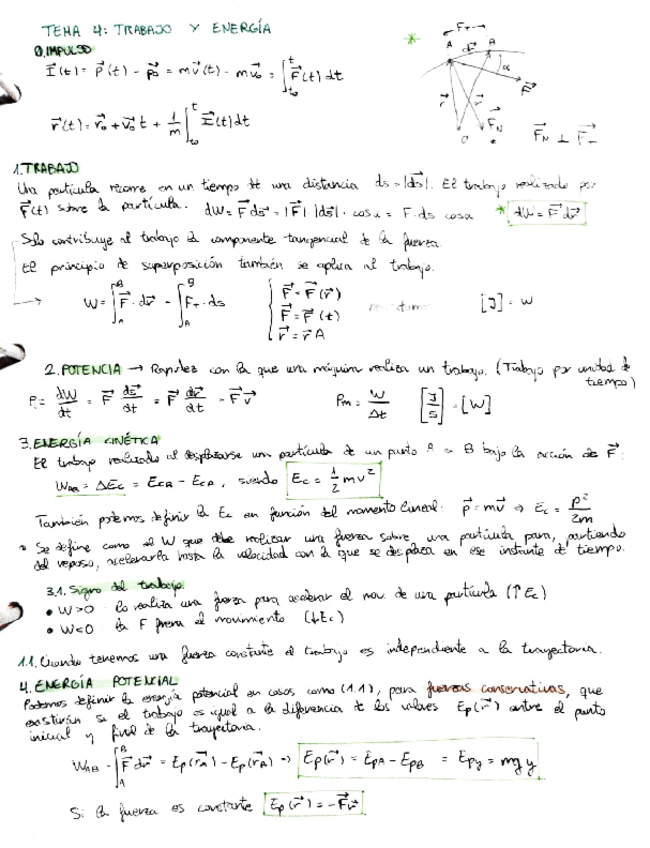 TEMA 4: TRABAJO Y ENERGÍA
0. IMPULSO
I⃗(t) = p⃗(t) - p⃗₀ = mv⃗(t) - mv⃗₀ = ∫ₜ₀ᵗ F⃗(t) dt
r⃗(t) = r⃗₀ + v⃗₀t + 1/m ∫ₜ₀ᵗ I⃗(t) dt
* F_T A B α F⃗ r⃗ F_N O F⃗_N ⊥ F⃗_T
1. TRABAJO
Una partícula recorre en un tiempo dt una distancia ds = |ds⃗|. El trabajo realizado por
F⃗(t) sobre la partícula. dW = F⃗ ds⃗ = |F⃗| |ds⃗| · cos α = F · ds cos α * dW = F⃗ dr⃗
Solo contribuye al trabajo la componente tangencial de la fuerza.
El principio de superposición también se aplica al trabajo.
→ W = ∫_A^B F⃗ · dr⃗ = ∫_A^B F_T · ds { F⃗ = F⃗(r⃗) [J] = W
F⃗ = F⃗(t)
r⃗ = r⃗ A
2. POTENCIA → Rapidez con la que una máquina realiza un trabajo. (Trabajo por unidad de
tiempo)
P = dW/dt = F⃗ ds⃗/dt = F⃗ dr⃗/dt = F⃗ v⃗ Pm = W/Δt [J/S] = [W]
3. ENERGÍA CINÉTICA
El trabajo realizado al desplazarse una partícula de un punto A a B bajo la acción de F⃗:
W_AB = ΔEc = E_CB - E_CA, siendo Ec = 1/2 mv²
También podemos definir la Ec en función del momento lineal: p⃗ = mv⃗ ⇒ Ec = p²/2m
• Se define como el W que debe realizar una fuerza sobre una partícula para, partiendo
del reposo, acelerarla hasta la velocidad con la que se desplaza en ese instante de tiempo.
3.1. Signo del trabajo:
• W>0 lo realiza una fuerza para acelerar el mov. de una partícula (↑Ec)
• W<0 la F frena el movimiento (↓Ec)
1.1. Cuando tenemos una fuerza constante el trabajo es independiente a la trayectoria.
4. ENERGÍA POTENCIAL
Podemos definir la energía potencial en casos como (1.1), para fuerzas conservativas, que
existirán si el trabajo es igual a la diferencia de los valores Ep(r⃗) entre el punto
inicial y final de la trayectoria.
W_AB = ∫_A^B F⃗ dr⃗ = Ep(r⃗_A) - Ep(r⃗_A) ⇒ Ep(r⃗) = E_PA - E_PB = E_Py = mgy
Si la fuerza es constante Ep(r⃗) = -F⃗r⃗